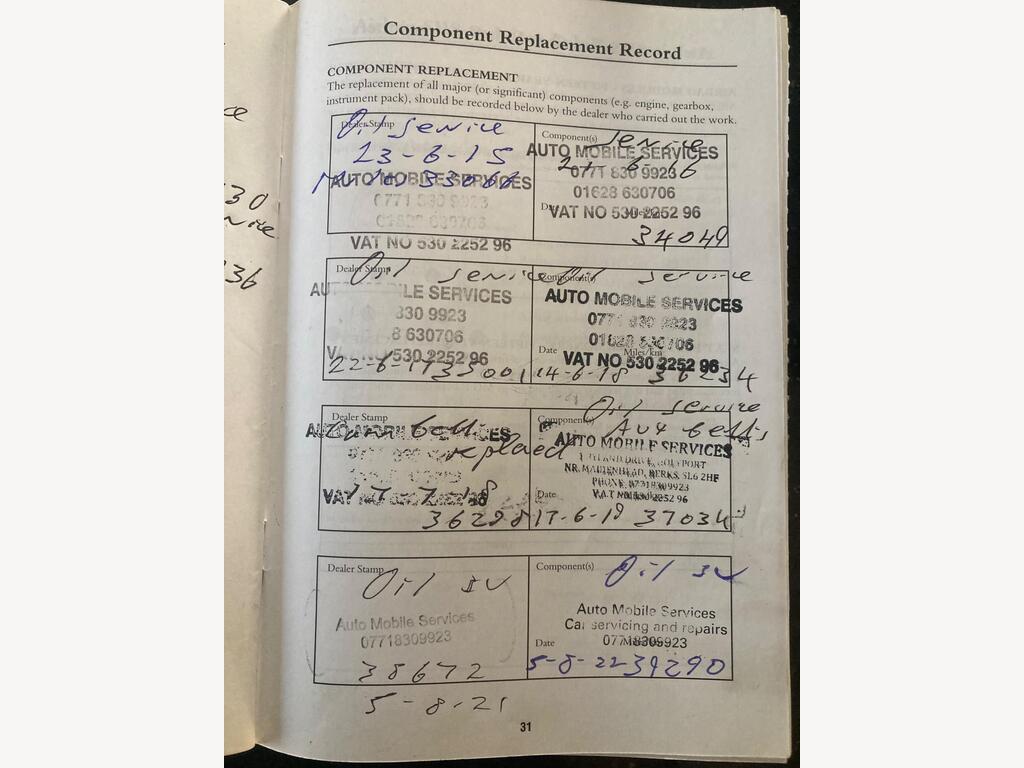 Component Replacement Record
COMPONENT REPLACEMENT
The replacement of all major (or significant) components (e.g. engine, gearbox,
instrument pack), should be recorded below by the dealer who carried out the work.
Dealer Stamp
Oil Service
23-6-15
33066
AUTO MOBILE SERVICES
0771 830 9923
01628 630706
VAT NO 530 2252 96
Component(s)
Service
AUTO MOBILE SERVICES
0771 830 9923
01628 630706
Date
VAT NO 530 2252 96
34049
Dealer Stamp
Oil Service
AU LE SERVICES
830 9923
8 630706
VAT NO 530 2252 96
22-6-17 35001
Component(s)
Oil Service
AUTO MOBILE SERVICES
0771 830 9923
01628 630706
Date
Miles/km
VAT NO 530 2252 96
14-6-18 36234
Dealer Stamp
Cam belt
replaced
AUTO MOBILE SERVICES
17-7-18
36298
Component(s)
Oil Service
Aux belts
AUTO MOBILE SERVICES
NR. MAIDENHEAD, BERKS. SL6 2HF
PHONE 07718309923
Date
V.A.T No 530 2252 96
37034
Dealer Stamp
Oil SV
Auto Mobile Services
07718309923
38672
5-8-21
Component(s)
Oil SV
Auto Mobile Services
Car servicing and repairs
Date
07718309923
5-8-22 39290
31
30
36